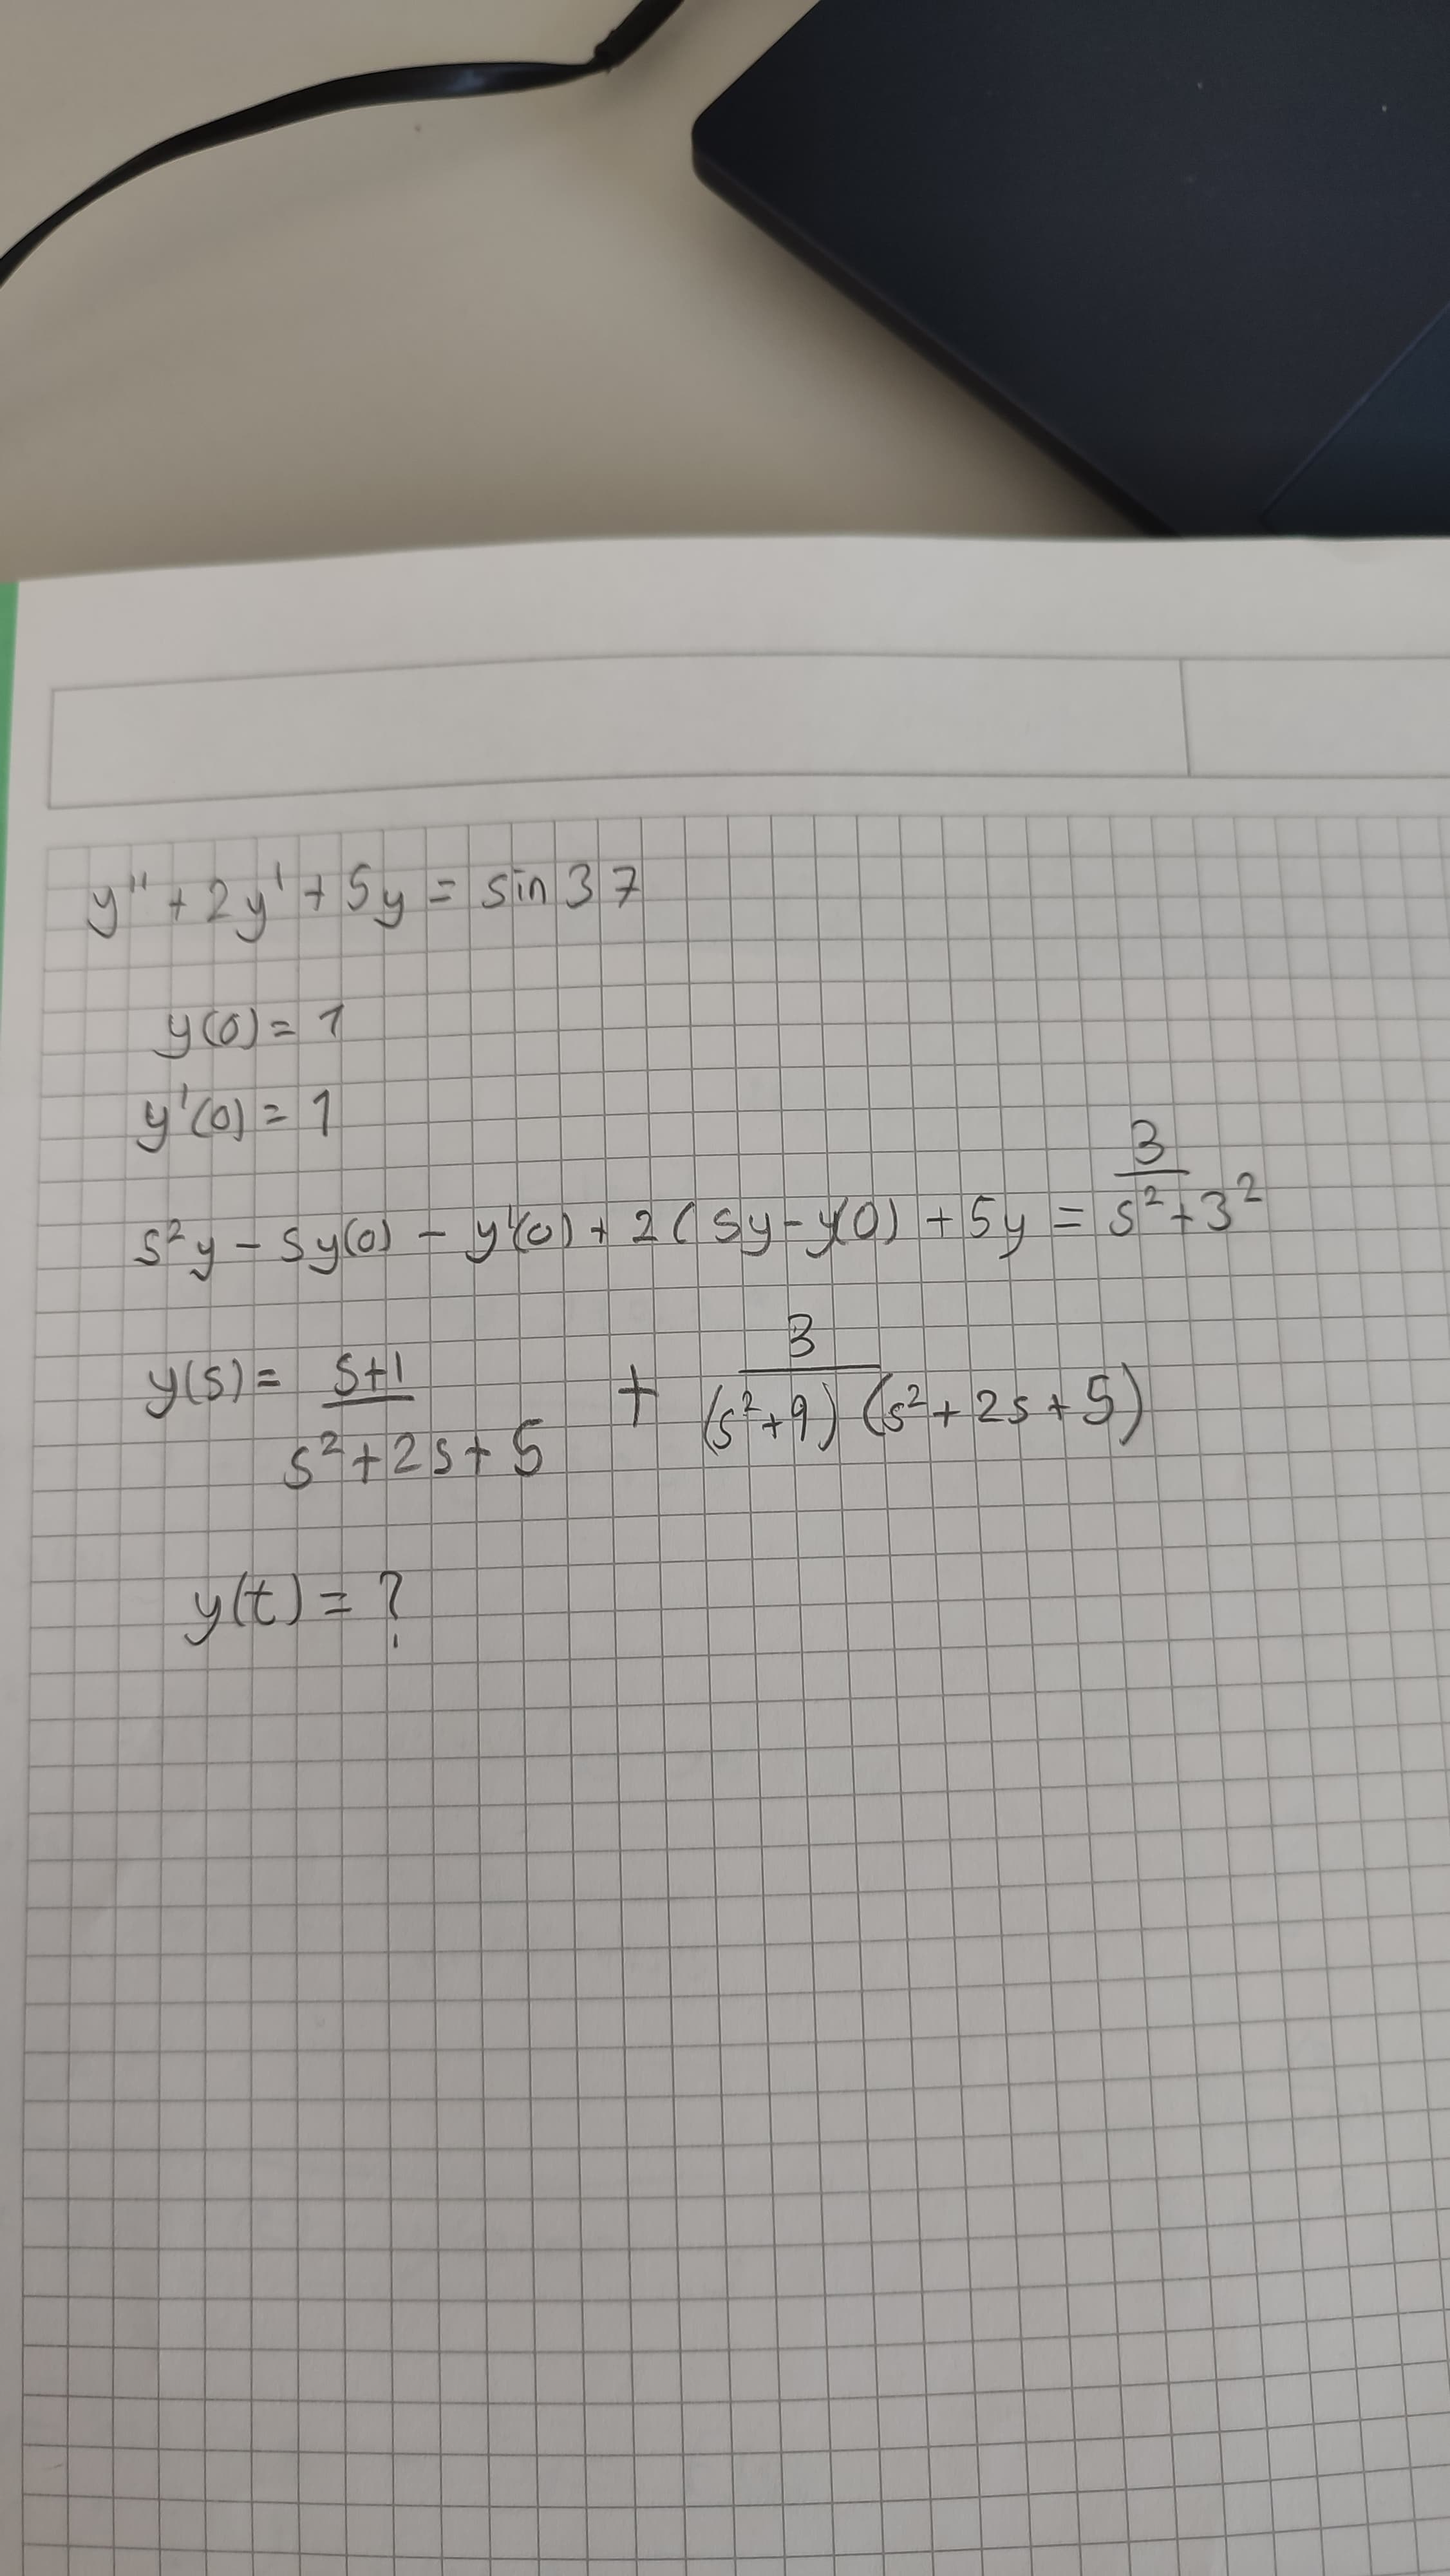 y'' + 2y' + 5y = sin 37
y(0) = 1
y'(0) = 1
s²y - sy(0) - y'(0) + 2(sy - y(0) + 5y = 3/(s² + 3²)
y(s) = (s+1)/(s² + 2s + 5) + 3/((s² + 9)(s² + 2s + 5))
y(t) = ?